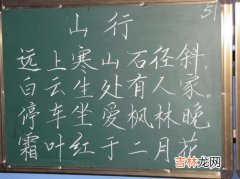 山行
51
远上寒山石径斜
白云生处有人家。
停车坐爱枫林晚
霜叶红于二月花
吉林龙网